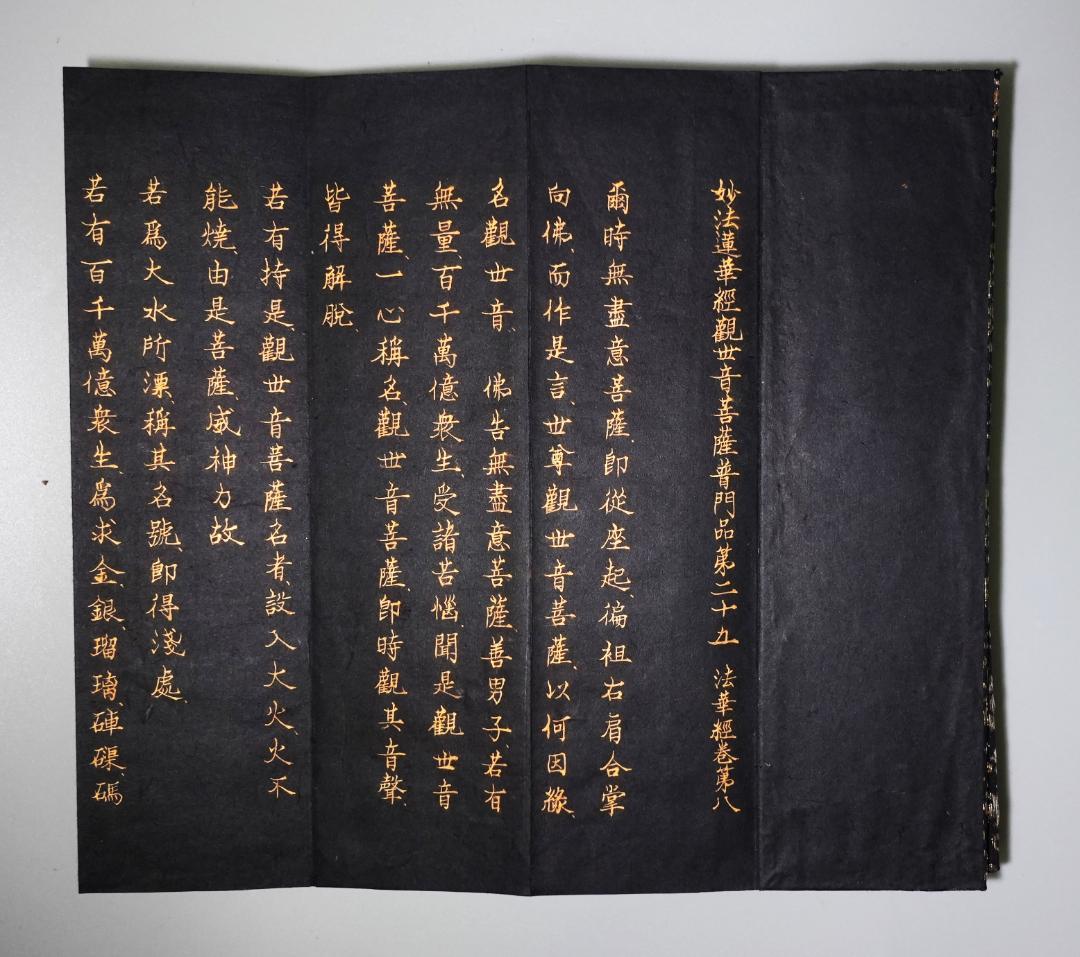 妙法蓮華經觀世音菩薩普門品第二十五　法華經卷第八
爾時無盡意菩薩、即從座起、徧袒右肩合掌
向佛、而作是言、世尊觀世音菩薩、以何因緣、
名觀世音、　佛告無盡意菩薩、善男子、若有
無量、百千萬億衆生、受諸苦惱、聞是觀世音
菩薩、一心稱名、觀世音菩薩、即時觀其音聲、
皆得解脫、
若有持是觀世音菩薩名者、設入大火、火不
能燒、由是菩薩、威神力故
若爲大水所漂、稱其名號、即得淺處、
若有百千萬億衆生、爲求金、銀、瑠璃、硨磲、碼